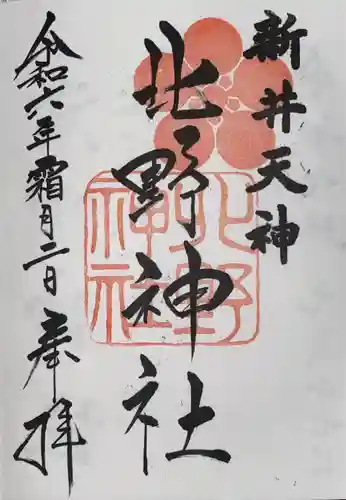 新井天神
北野神社
北野神社
令和六年霜月二日
奉拝